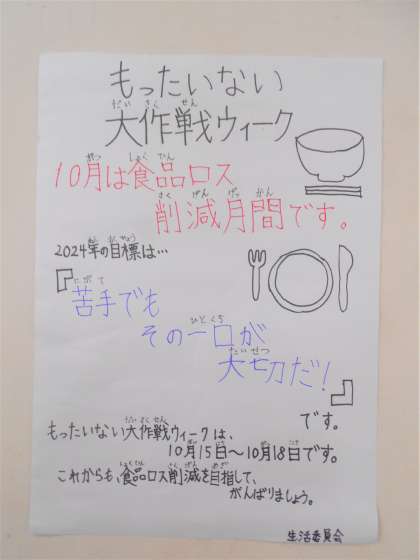 もったいない
大作戦ウィーク
10月は食品ロス
削減月間です。
2024年の目標は…
『苦手でも
その一口が
大切だ!』
です。
もったいない大作戦ウィークは、
10月15日〜10月18日です。
これからも、食品ロス削減を目指して、
がんばりましょう。
生活委員会